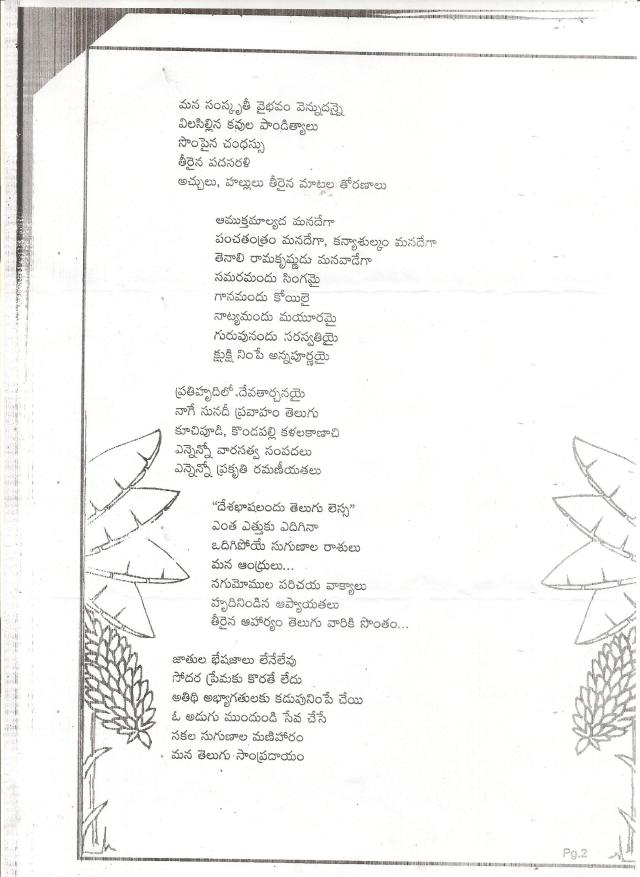 మన సంస్కృతీ వైభవం వెన్నుదన్నై
విలసిల్లిన కవుల పాండిత్యాలు
సొంపైన చంధస్సు
తీరైన పదసరళి
అచ్చులు, హల్లులు తీరైన మాటల తోరణాలు
ఆముక్తమాల్యద మనదేగా
పంచతంత్రం మనదేగా, కన్యాశుల్కం మనదేగా
తెనాలి రామకృష్ణుడు మనవాడేగా
సమరమందు సింగమై
గానమందు కోయిలై
నాట్యమందు మయూరమై
గురువునందు సరస్వతియై
క్షుక్షి నింపే అన్నపూర్ణయై
ప్రతిహృదిలో దేవతార్చనయై
సాగే సునదీ ప్రవాహం తెలుగు
కూచిపూడి, కొండపల్లి కళలకాణాచి
ఎన్నెన్నో వారసత్వ సంపదలు
ఎన్నెన్నో ప్రకృతి రమణీయతలు
“దేశభాషలందు తెలుగు లెస్స”
ఎంత ఎత్తుకు ఎదిగినా
ఒదిగిపోయే సుగుణాల రాశులు
మన ఆంధ్రులు...
నగుమోముల పరిచయ వాక్యాలు
హృదినిండిన ఆప్యాయతలు
తీరైన ఆహార్యం తెలుగు వారికి సొంతం...
జాతుల భేషజాలు లేనేలేవు
సోదర ప్రేమకు కొరతే లేదు
అతిథి అభ్యాగతులకు కడుపునింపే చేయి
ఓ అడుగు ముందుండి సేవ చేసే
సకల సుగుణాల మణిహారం
మన తెలుగు సాంప్రదాయం
Pg.2